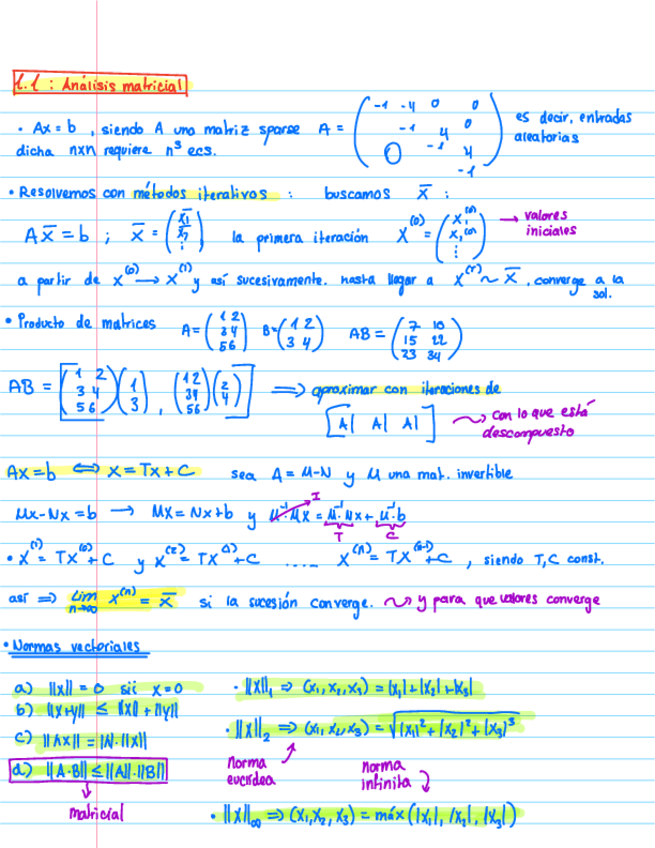 1.1 : Análisis matricial
• Ax = b , siendo A una matriz sparse A = ( -1 -4 0 0 / -1 4 0 / 0 -1 4 / -1 ) es decir, entradas aleatorias
dicha nxn requiere n³ ecs.
• Resolvemos con métodos iterativos : buscamos x̄ :
A x̄ = b ; x̄ = ( x̄₁ / x̄₂ / ⋮ ) la primera iteración x⁽⁰⁾ = ( x₁⁽⁰⁾ / x₁⁽⁰⁾ / ⋮ ) → valores iniciales
a partir de x⁽⁰⁾ → x⁽¹⁾ y así sucesivamente. hasta llegar a x⁽ʳ⁾ ~ x̄ , converge a la sol.
• Producto de matrices A = ( 1 2 / 3 4 / 5 6 ) B = ( 1 2 / 3 4 ) AB = ( 7 10 / 15 22 / 23 34 )
AB = [ ( 1 2 / 3 4 / 5 6 ) ( 1 / 3 ) , ( 1 2 / 3 4 / 5 6 ) ( 2 / 4 ) ] ⟹ aproximar con iteraciones de
[ A| A| A| ] ⤳ con lo que está descompuesto
Ax = b ⟺ x = Tx + C sea A = M - N y M una mat. invertible
Mx - Nx = b → Mx = Nx + b y M⁻¹·Mx = M⁻¹·Nx + M⁻¹·b
I T C
• x⁽¹⁾ = Tx⁽⁰⁾ + C y x⁽²⁾ = Tx⁽¹⁾ + C ..... x⁽ⁿ⁾ = Tx⁽ⁿ⁻¹⁾ + C , siendo T, C const.
así ⟹ lim n→∞ x⁽ⁿ⁾ = x̄ si la sucesión converge. ⤳ y para que valores converge
• Normas vectoriales
a) ||x|| = 0 sii x = 0
b) ||x+y|| ≤ ||x|| + ||y||
c) ||λx|| = |λ|·||x||
d) ||A·B|| ≤ ||A||·||B||
matricial
• ||x||₁ ⟹ (x₁, x₂, x₃) = |x₁| + |x₂| + |x₃|
• ||x||₂ ⟹ (x₁, x₂, x₃) = √|x₁|² + |x₂|² + |x₃|³
norma euclídea
norma infinita
• ||x||∞ ⟹ (x₁, x₂, x₃) = máx (|x₁|, |x₂|, |x₃|)